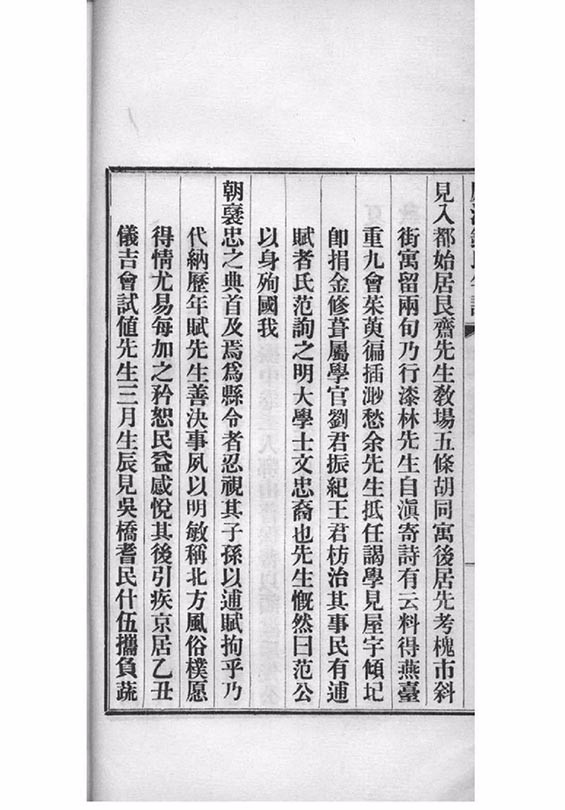 見入都始居艮齋先生敎場五條胡同寓後居先考槐市斜
街寓留兩旬乃行漆林先生自滇寄詩有云料得燕臺
重九會茱萸徧插渺愁余先生抵任謁學見屋宇傾圮
卽捐金修葺屬學官劉君振紀王君枋治其事民有逋
賦者氏范詢之明大學士文忠裔也先生慨然曰范公
以身殉國我
朝襃忠之典首及焉爲縣令者忍視其子孫以逋賦拘乎乃
代納歷年賦先生善決事夙以明敏稱北方風俗樸愿
得情尤易每加之矜恕民益感悅其後引疾京居乙丑
儀吉會試値先生三月生辰見吳橋耆民什伍攜負蔬